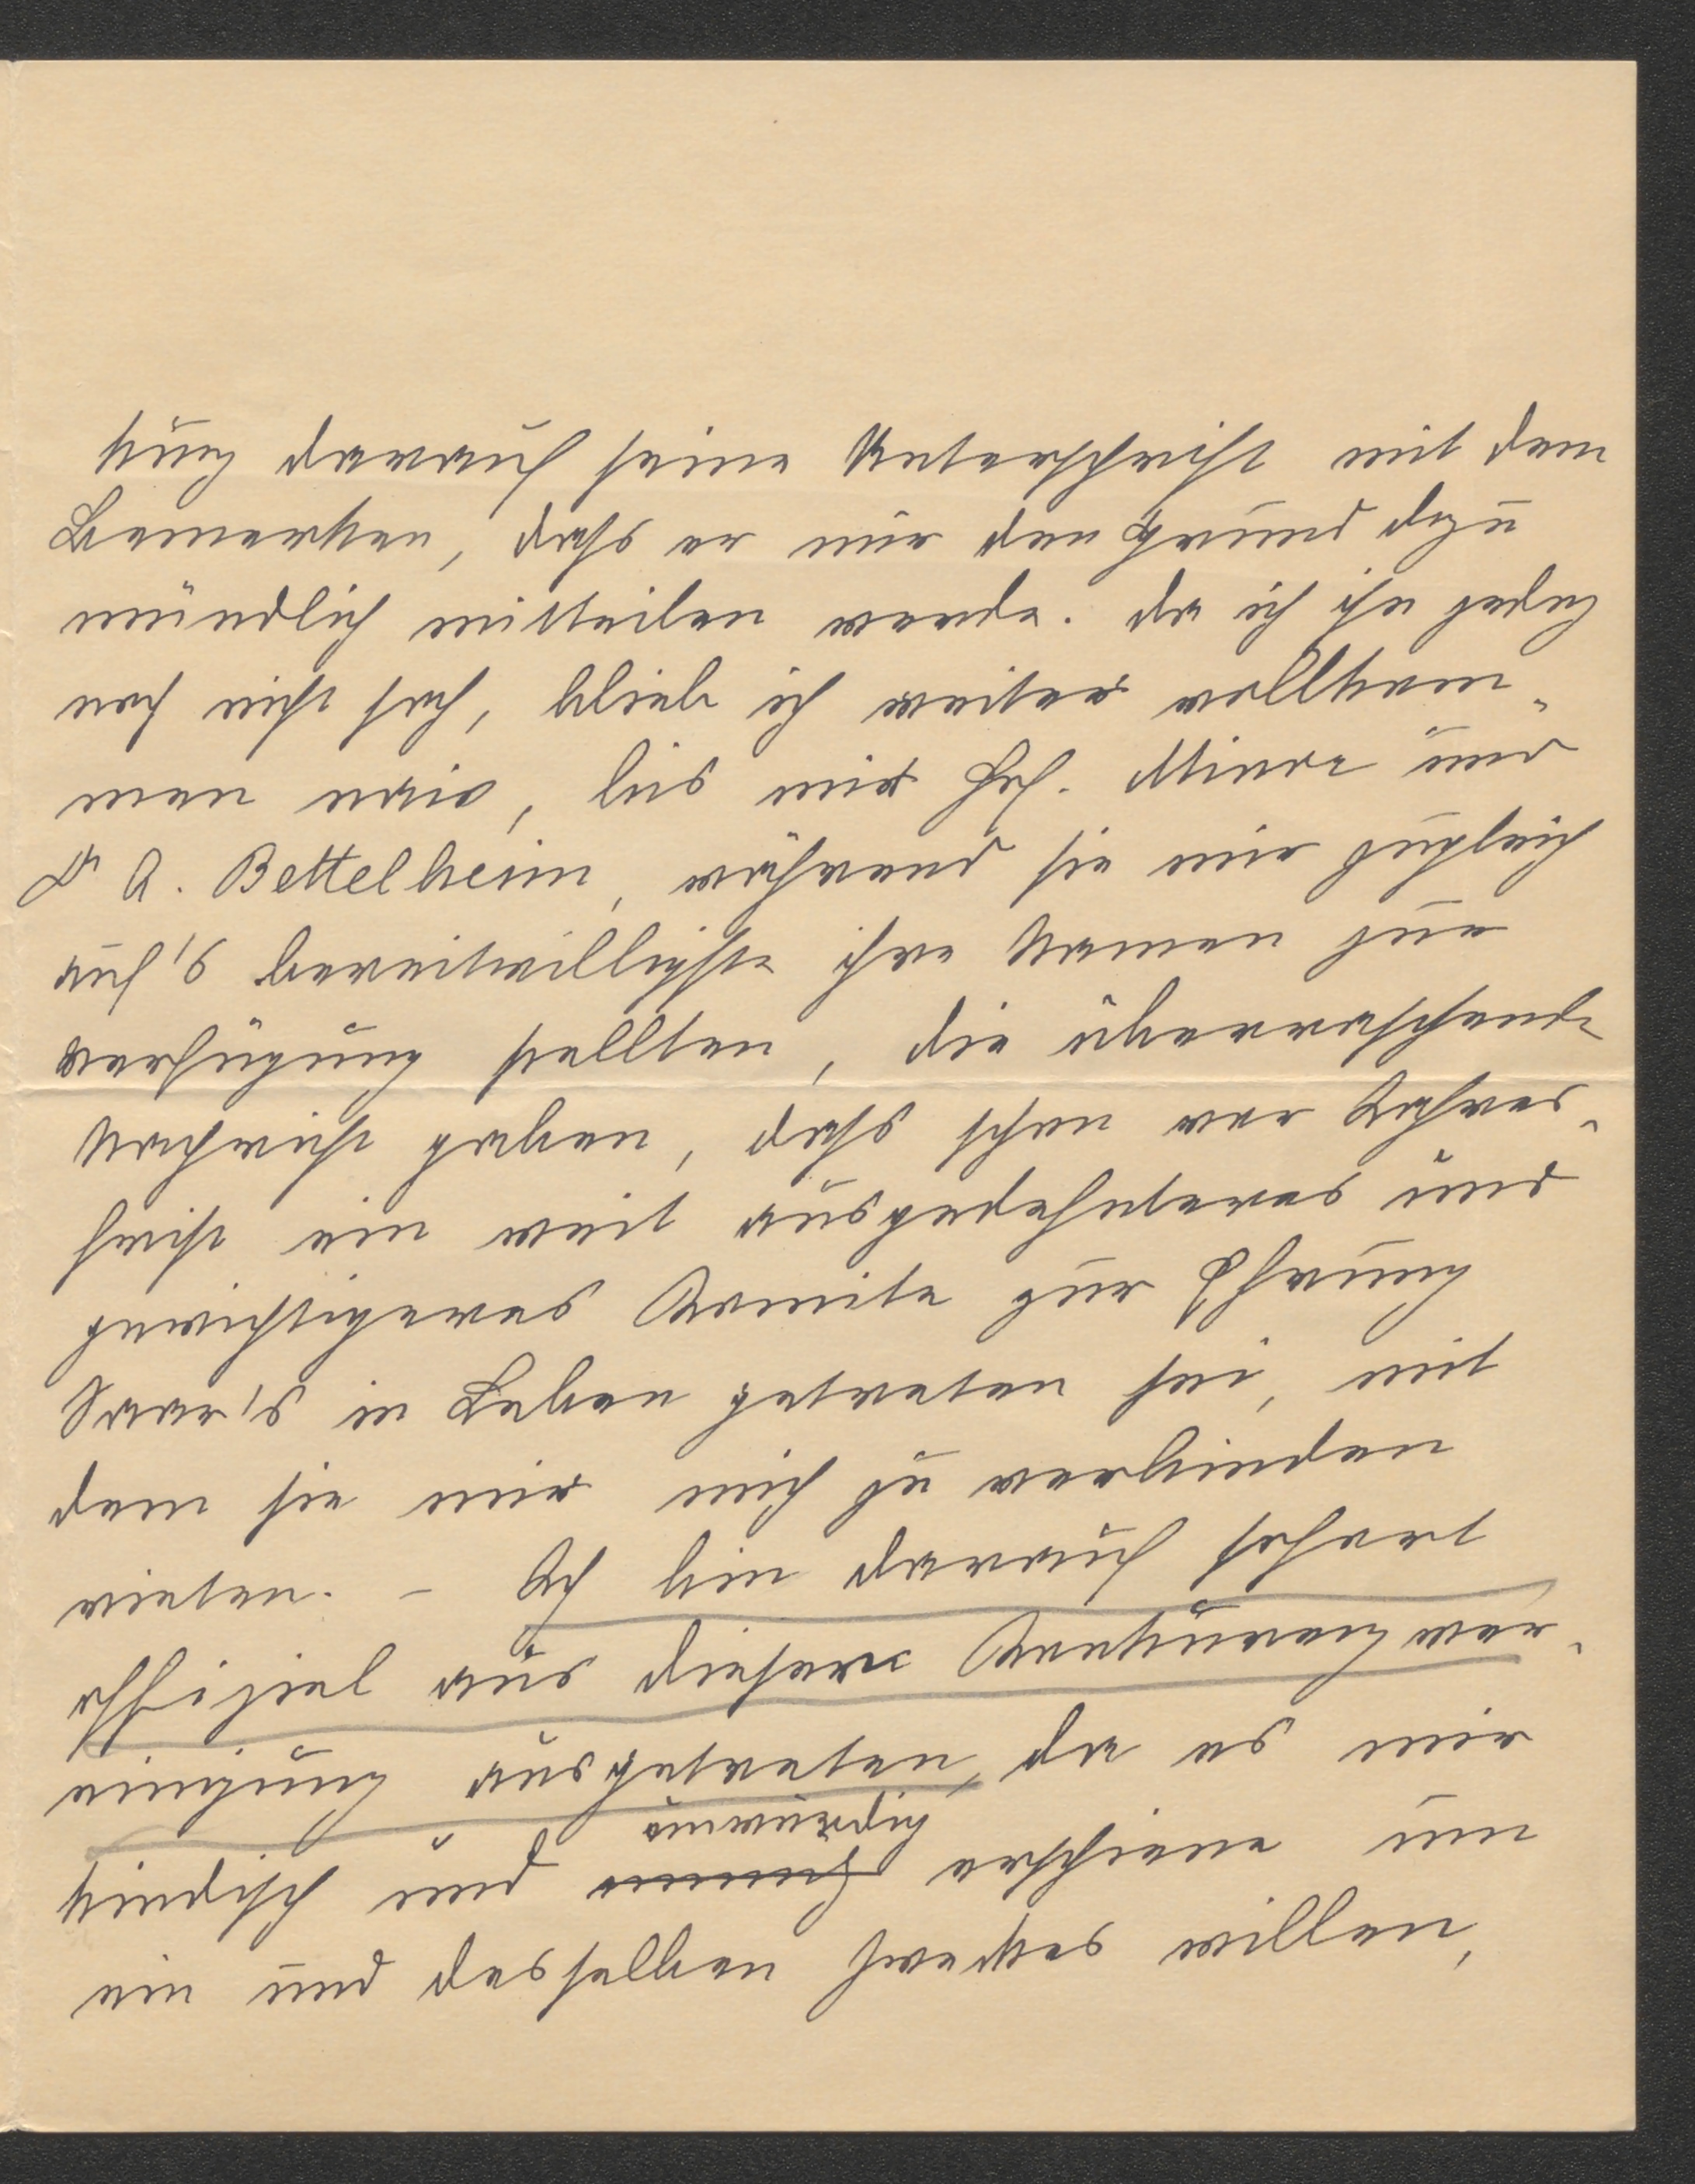 kurz darauf seine Unterschrift mit dem
Bemerken, dass er mir den Grund dazu
mündlich mitteilen werde. Da ich ihn jedoch
noch nicht sah, blieb ich weiter vollkom-
men naiv, bis mir Prof. Minor und
Dr A. Bettelheim, während sie mir zugleich
auf's bereitwilligste ihre Namen zur
Verfügung stellten, die überraschende
Nachricht gaben, dass schon vor Jahres-
frist ein weit ausgedehnteres und
gewichtigeres Komite zur Ehrung
Saar's in Leben getreten sei, mit
dem sie mir mich zu verbinden
rieten. – Ich bin darauf sofort
offiziel aus dieser Konkurrenzver-
einigung ausgetreten, da es mir
unwürdig
kindisch und erschiene um
ein und desselben Zweckes willen,